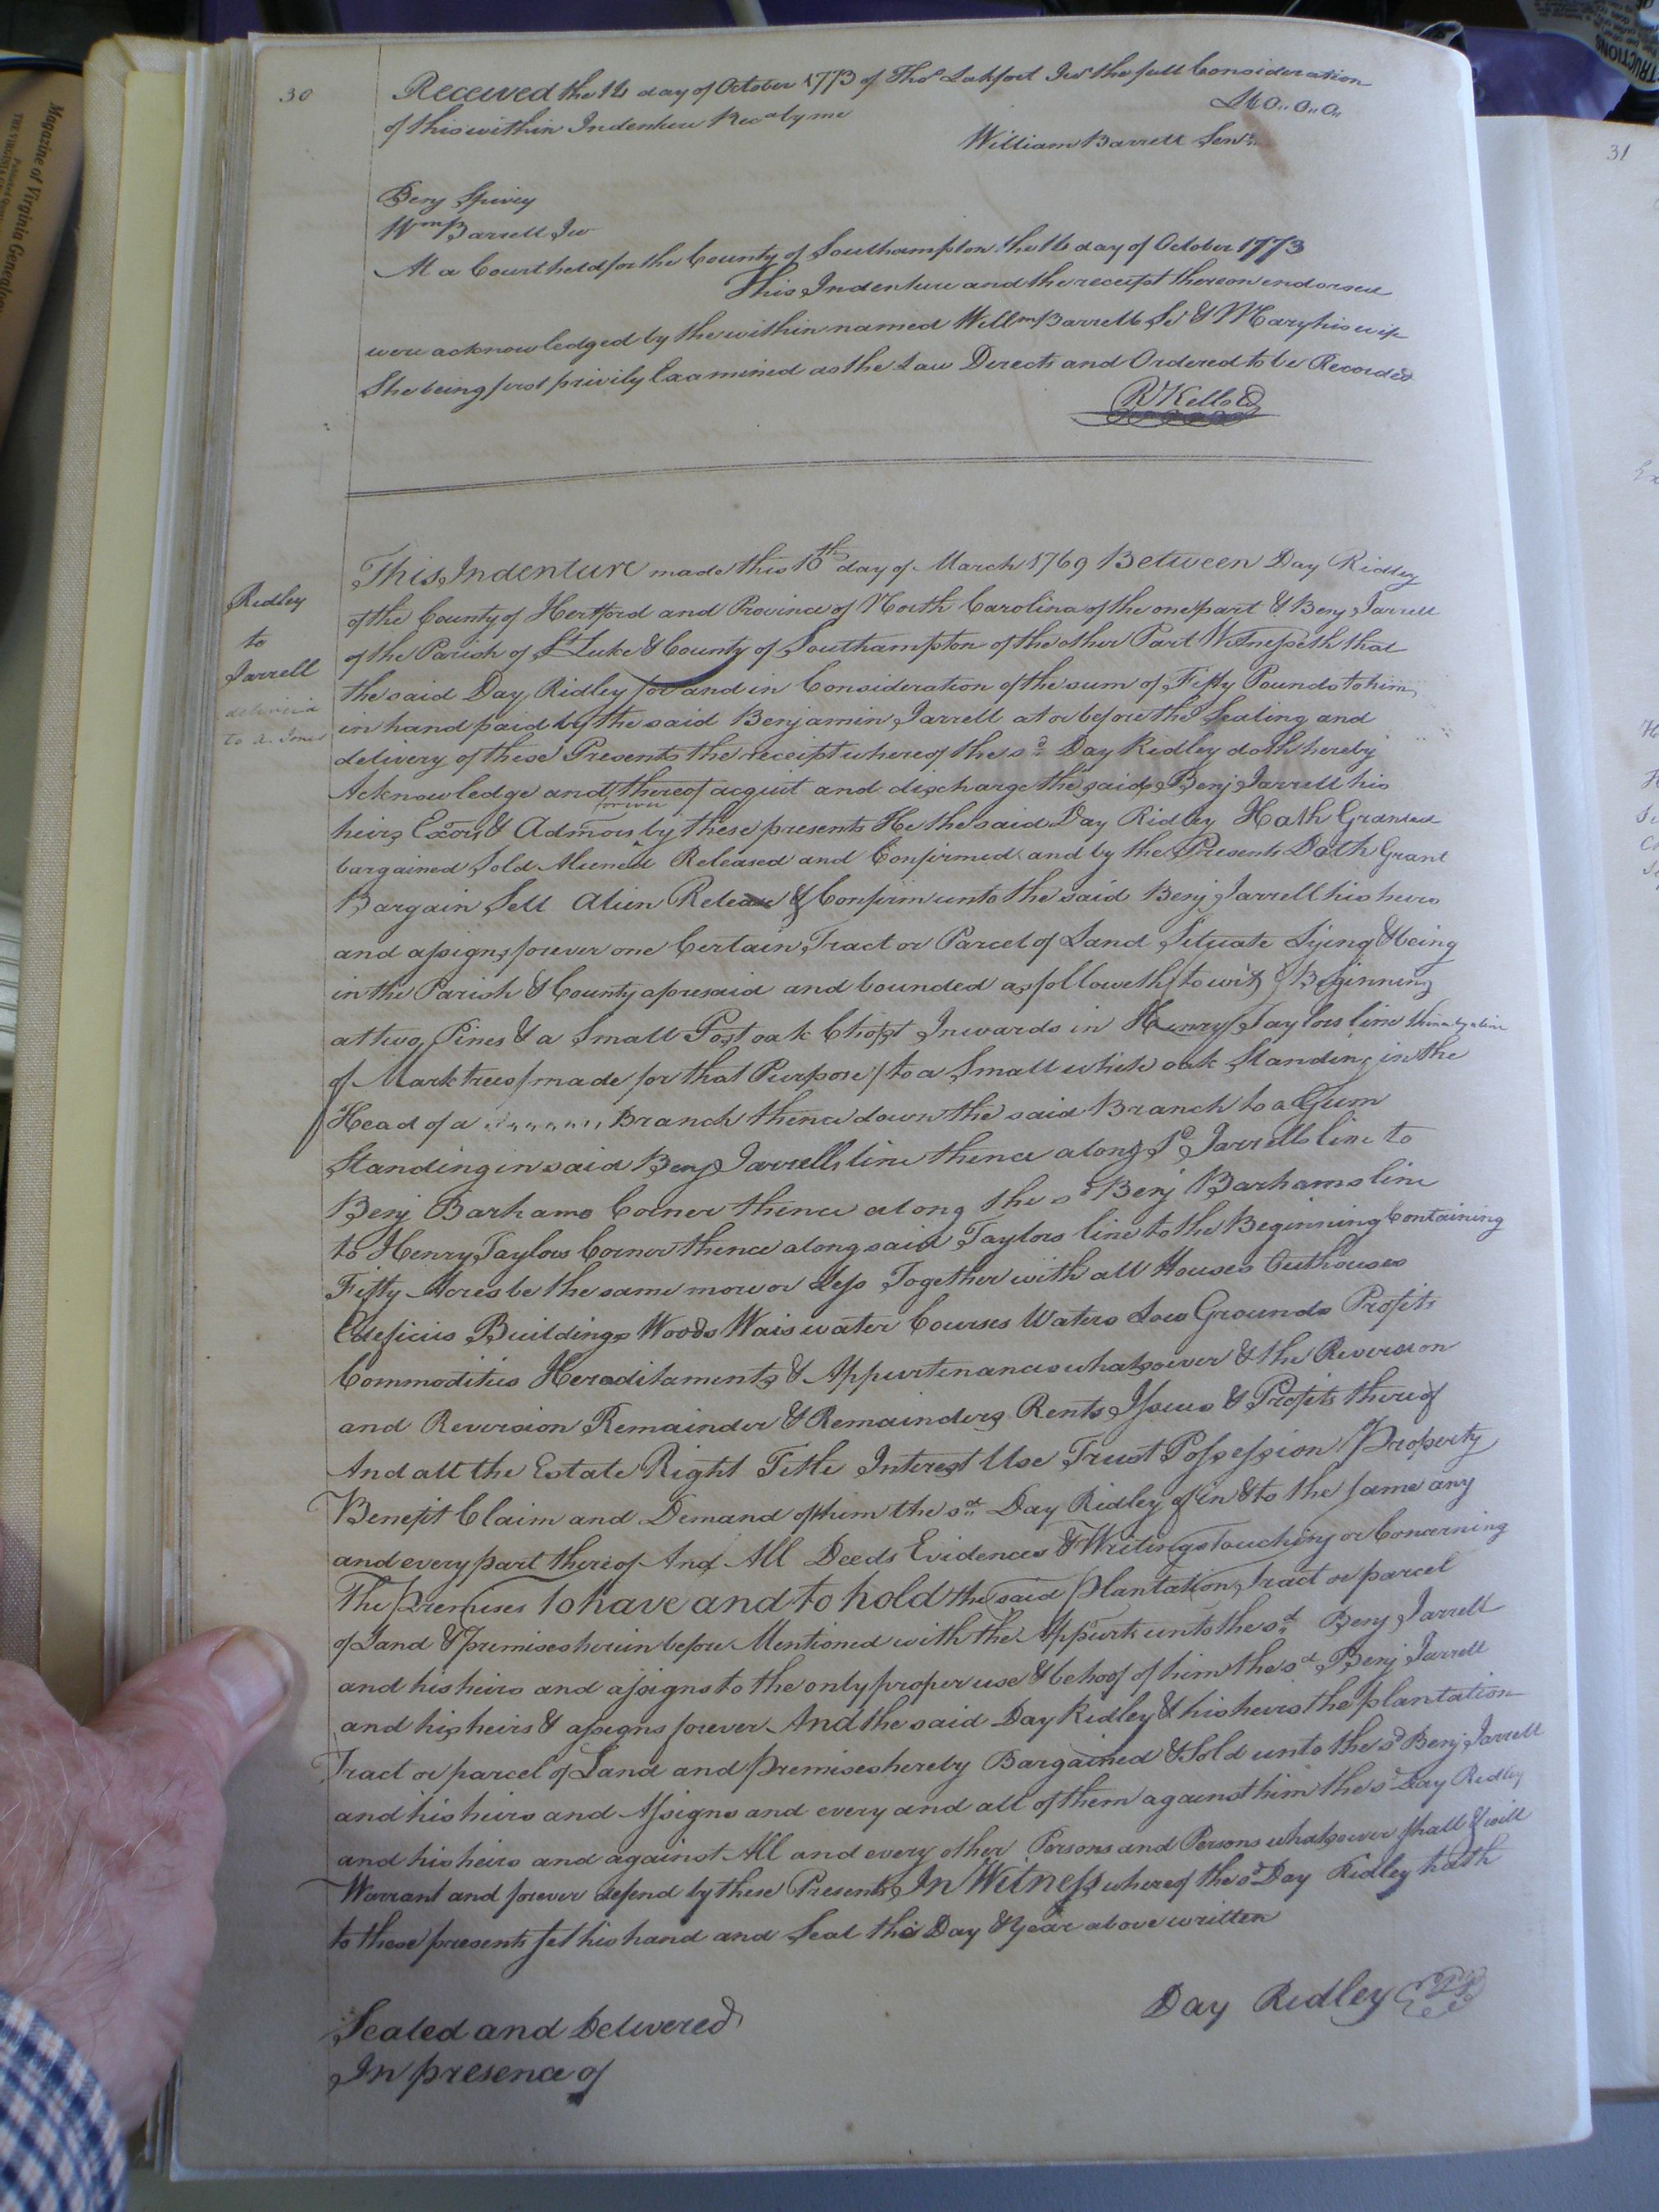 30
Received the 14 day of October 1773 of Thos Lakfort Jur the full Consideration
of this within Indenture Recd by me
William Barrett Senr
Benj Spivey
Wm Barrett Jur
At a Court held for the County of Southampton the 14 day of October 1773
This Indenture and the receipt thereon endorsed
were acknowledged by the within named Willm Barrett Sr & Mary his wife
She being first privily Examined as the Law Directs and Ordered to be Recorded
R Kello
Ridley
to
Jarrell
delivered
to
This Indenture made this 16th day of March 1769 Between Day Ridley
of the County of Hertford and Province of North Carolina of the one part & Benj Jarrell
of the Parish of St Luke & County of Southampton of the other Part Witnesseth that
the said Day Ridley for and in Consideration of the sum of Fifty Pounds to him
in hand paid by the said Benjamin Jarrell at or before the Sealing and
delivery of these Presents the receipt whereof the sd Day Ridley doth hereby
Acknowledge and thereof acquit and discharge the said Benj Jarrell his
heirs Exors & Admors forever by these presents He the said Day Ridley Hath Granted
bargained Sold Aliened Released and Confirmed and by the Presents Doth Grant
Bargain Sell Alien Release & Confirm unto the said Benj Jarrell his heirs
and assigns forever one Certain Tract or Parcel of Land Situate Lying & being
in the Parish & County aforesaid and bounded as followeth (to wit) Beginning
at two Pines & a Small Post oak Chopt Inwards in Henry Taylors line thence by a line
of Mark trees made for that Purpose to a Small white oak Standing in the
Head of a Branch thence down the said Branch to a Gum
Standing in said Benj Jarrells line thence along sd Jarrells line to
Benj Barhams Corner thence along the sd Benj Barhams line
to Henry Taylors Corner thence along said Taylors line to the Beginning Containing
Fifty Acres be the same more or less Together with all Houses Outhouses
Edeficies Buildings Woods Wais water Courses Waters Low Grounds Profits
Commodities Hereditaments & Appurtenances whatsoever & the Reversion
and Reversion Remainder & Remainders Rents Issues & Profits thereof
And all the Estate Right Title Interest Use Trust Possession Property
Benefit Claim and Demand of him the sd Day Ridley of in & to the same any
and every part thereof And All Deeds Evidences & Writings touching or Concerning
The Premises To have and to hold the said Plantation Tract or parcel
of Land & premises herein before Mentioned with the Appurts unto the sd Benj Jarrell
and his heirs and assigns to the only proper use & behoof of him the sd Benj Jarrell
and his heirs & assigns forever And the said Day Ridley & his heirs the plantation
Tract or parcel of Land and premises hereby Bargained & Sold unto the sd Benj Jarrell
and his heirs and Assigns and every and all of them against him the sd Day Ridley
and his heirs and against All and every other Persons and Persons whatsoever shall & will
Warrant and forever defend by these Presents In Witness whereof the sd Day Ridley hath
to these presents set his hand and Seal the Day & Year above written
Day Ridley
Sealed and Delivered
In presence of
31
Magazine of Virginia Genealogy